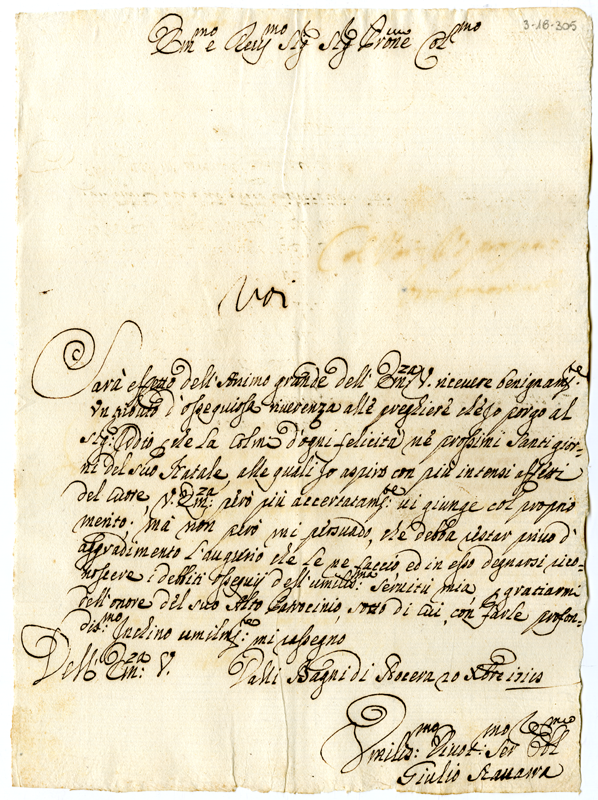 3-16-305
Em.mo e Rev.mo Sig. Sig. Prone Col.mo
Sarà effetto dell'Animo grande dell'Em.za V. ricevere benignam.te
un tributo d'ossequiosa riverenza alle preghiere ch'io porgo al
Sig. Iddio, che la colmi d'ogni felicità ne prossimi Santi gior-
ni del suo Natale, alle quali Io aspiro con più intensi affetti
del cuore, V. Em.za però più accertatam.te vi giunge col proprio
merito. Mà non però mi persuado, che debba restar privo d'
aggradimento l'augurio che Le ne faccio ed in esso degnarsi rico-
noscere i debiti ossequij dell'umilis.ma servitù mia, e gratiarmi
dell'onore del suo Alto Patrocinio, sotto di cui, con farle profon-
dis.mo Inclino umilm.te mi rassegno
Dell'Em.za V. Dalli Bagni di Nocera 20 Xbre
Umiliss.mo Divot.mo Ser
Giulio